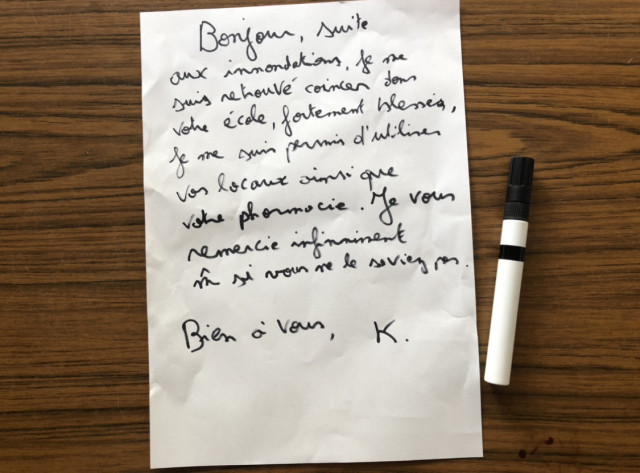 Bonjour, suite
aux innondations, je me
suis retrouvé coincer dans
votre école, fortement blesser,
je me suis permis d'utiliser
vos locaux ainsi que
votre pharmacie. Je vous
remercie infinniment
m si vous ne le saviez pas.
Bien à vous, K.